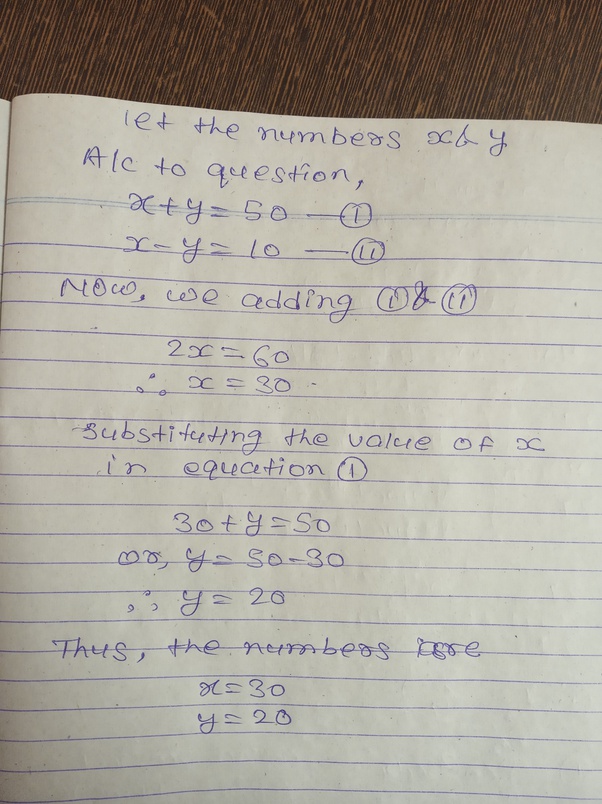 let the numbers x & y
A/c to question,
x+y=50 —Ⓘ
x-y=10 —Ⓘⓘ
Now, we adding Ⓘ & Ⓘⓘ
2x=60
∴ x=30
substituting the value of x
in equation Ⓘ
30+y=50
or, y=50-30
∴ y=20
Thus, the numbers are
x=30
y=20